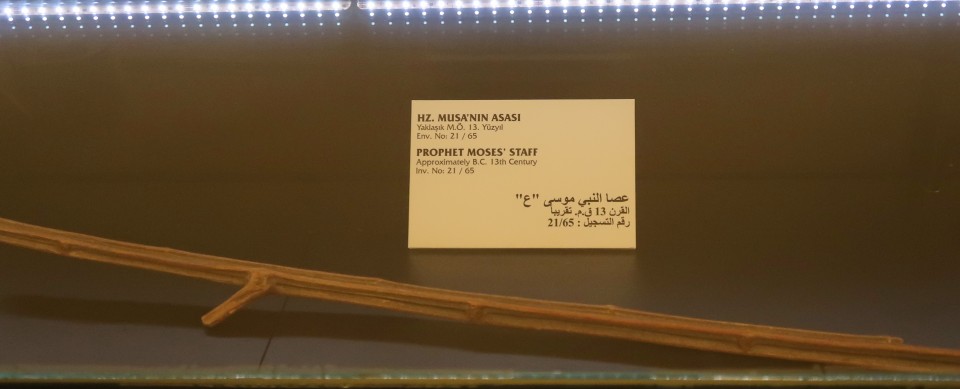 HZ. MUSA'NIN ASASI
Yaklaşık M.Ö. 13. Yüzyıl
Env. No: 21 / 65
PROPHET MOSES' STAFF
Approximately B.C. 13th Century
Inv. No: 21 / 65
عصا النبي موسى "ع"
القرن 13 ق.م. تقريبا
رقم التسجيل : 21/65